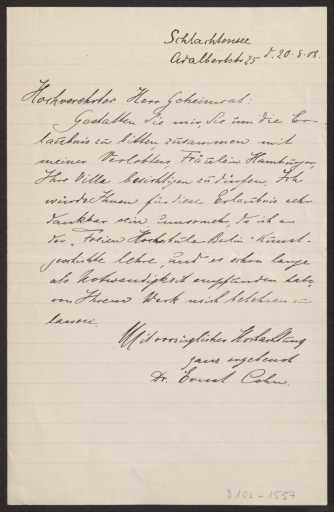 Schlachtensee
Adalbertstr. 25 d. 20.5.08.
Hochverehrter Herr Geheimrat:
Gestatten Sie mir, Sie um die Er-
laubnis zu bitten zusammen mit
meiner Verlobten, Fräulein Hamburger,
Ihr Villa besichtigen zu dürfen. Ich
würde Ihnen für diese Erlaubnis sehr
dankbar sein, umsomehr, da ich an
der "Freien Hochschule Berlin" Kunst-
geschichte lehre, und es schon lange
als Notwendigkeit empfunden habe,
von Ihrem Werk mich belehren zu
lassen.
Mit vorzüglicher Hochachtung
ganz ergebenst
Dr. Ernst Cohn.
D102-1557